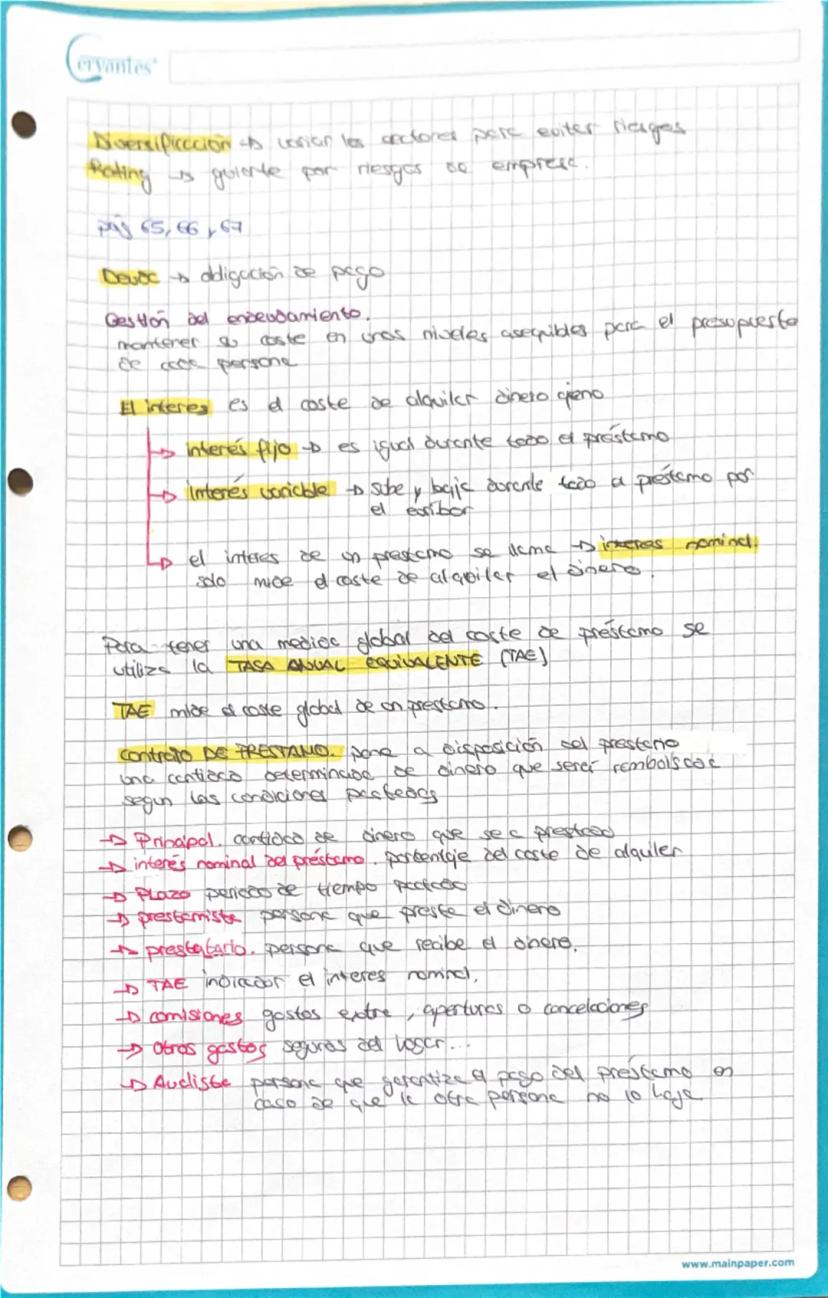 Cervantes
Diversificación → variar los sectores para evitar riesgos
Rating → puiente por riesgos de empresa.
pág 65, 66 y 67
Deuda → obligación de pago
Gestión del endeudamiento.
mantener su coste en unos niveles asequibles para el presupuesto
de cada persona
El interes es el coste de alquilar dinero ajeno
→ interés fijo → es igual durante todo el préstamo
→ interés variable → sube y baja durante todo el préstamo por
el euribor
→ el interes de un prestamo se llama → interes nominal.
solo mide el coste de alquilar el dinero.
Para tener una medida global del coste de préstamo se
utiliza la TASA ANUAL EQUIVALENTE (TAE)
TAE mide el coste global de un prestamo.
contrato DE PRESTAMO. pone a disposición del prestario
una cantidad determinada de dinero que será rembolsada
segun las condiciones pactadas
→ Principal. cantidad de dinero que se a prestado
→ interés nominal del préstamo. porcentaje del coste de alquiler
→ Plazo periodo de tiempo pactado
→ prestamista persona que presta el dinero
→ prestatario. persona que recibe el dinero.
→ TAE indicador el interes nominal.
→ comisiones gastos extra, aperturas o cancelaciones
→ otros gastos seguros del hogar...
→ Avalista persona que garantiza el pago del préstamo en
caso de que la otra persona no lo haga
www.mainpaper.com